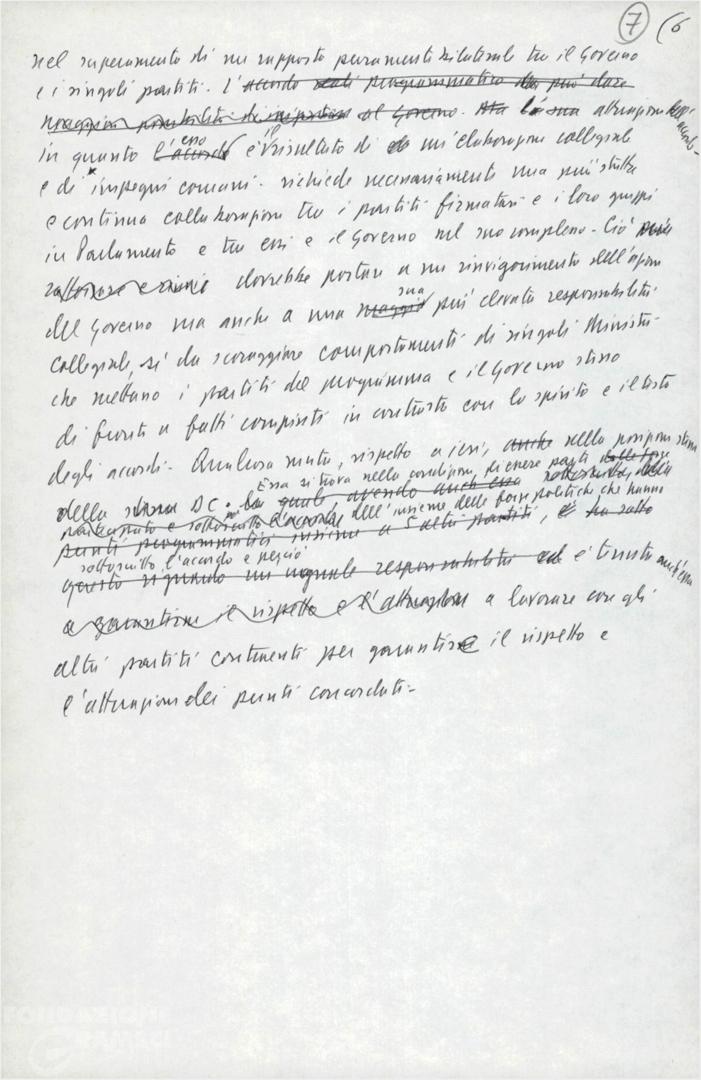 7 (6
nel superamento di un rapporto puramente bilaterale tra il Governo
e i singoli partiti. L'accordo programmatico può dare
maggiori possibilità di al Governo. Ma la sua attuazione
in quanto l'accordo esso è il risultato di un'elaborazione collegiale
e di impegni comuni. richiede necessariamente una più stretta
e continua collaborazione tra i partiti firmatari e i loro gruppi
in Parlamento e tra essi e il Governo nel suo complesso. Ciò
dovrebbe portare a un rinvigorimento dell'azione
del Governo ma anche a una sua più elevata responsabilità
collegiale, sì da scoraggiare comportamenti di singoli Ministri
che mettano i partiti del programma e il Governo stesso
di fronte a fatti compiuti in contrasto con lo spirito e il testo
degli accordi. Qualcosa muta, rispetto a ieri, anche nella posizione stessa
Essa si trova nella condizione di essere parte
della stessa DC. La quale avendo anch'essa
partecipato e sottoscritto l'accordo dell'insieme delle forze politiche che hanno
punti programmatici insieme a 5 altri partiti, ha
sottoscritto l'accordo e perciò
questo significando un uguale responsabilità è tenuta anch'essa
a garantirne il rispetto e l'attuazione a lavorare con gli
altri partiti contraenti per garantire il rispetto e
l'attuazione dei punti concordati.
FONDAZIONE
GRAMSCI